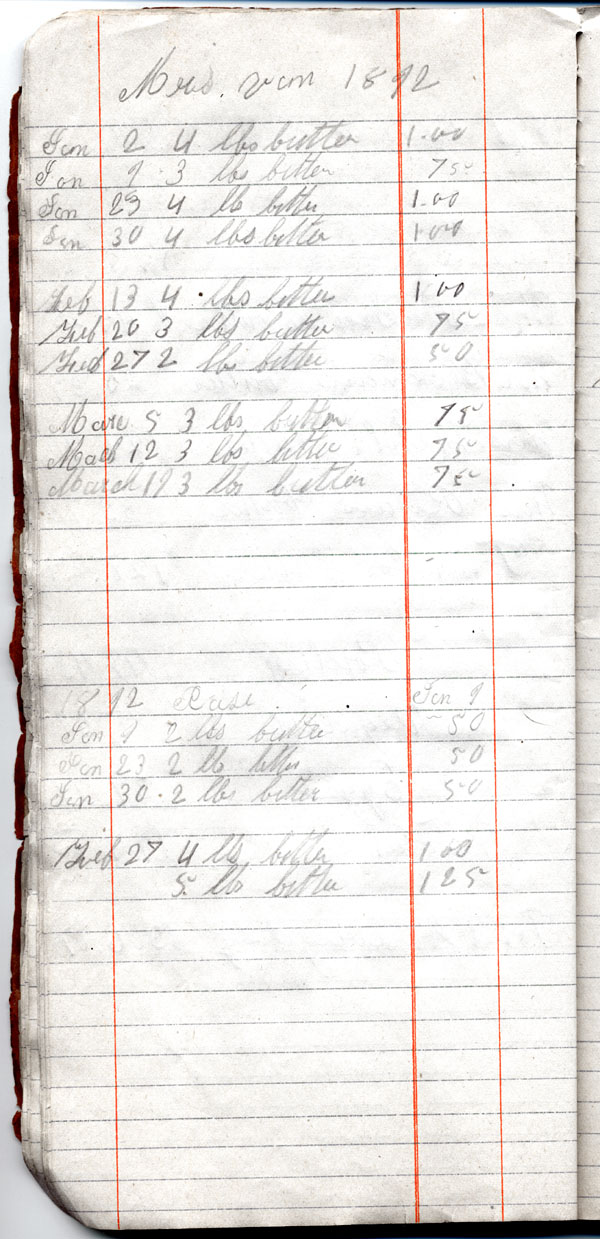 Mrs. van 1892
Jan 2 4 lbs butter 1.00
Jan 9 3 lbs better 75
Jan 23 4 lb better 1.00
Jan 30 4 lbs better 1.00
Feb 13 4 lbs better 1.00
Feb 20 3 lbs butter 75
Feb 27 2 lb better 50
Marc 5 3 lbs button 75
Mach 12 3 lbs better 75
March 19 3 lbs button 75
1892 Jan 9
Jan 9 2 lbs butter 50
Jan 23 2 lb better 50
Jan 30 2 lbs better 50
Feb 27 4 lbs better 1 00
5 lbs better 1 25